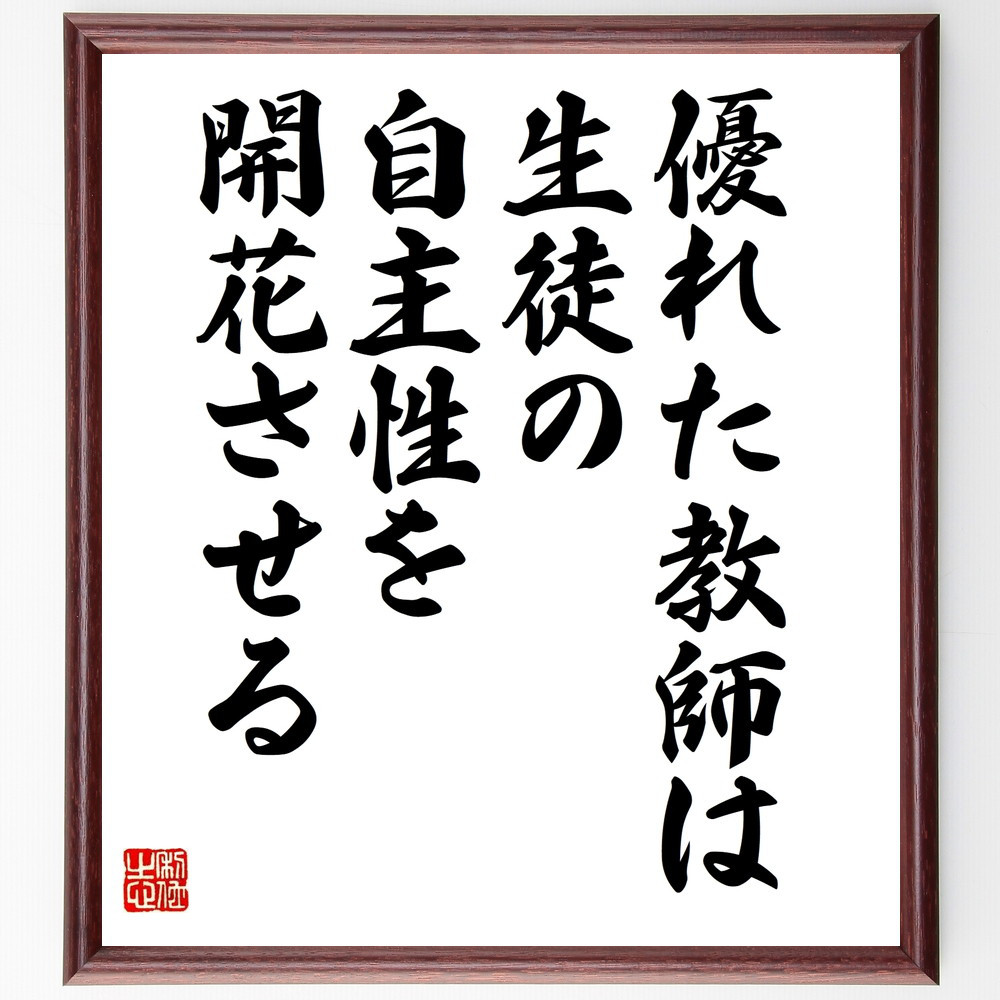 優れた教師は
生徒の
自主性を
開花させる